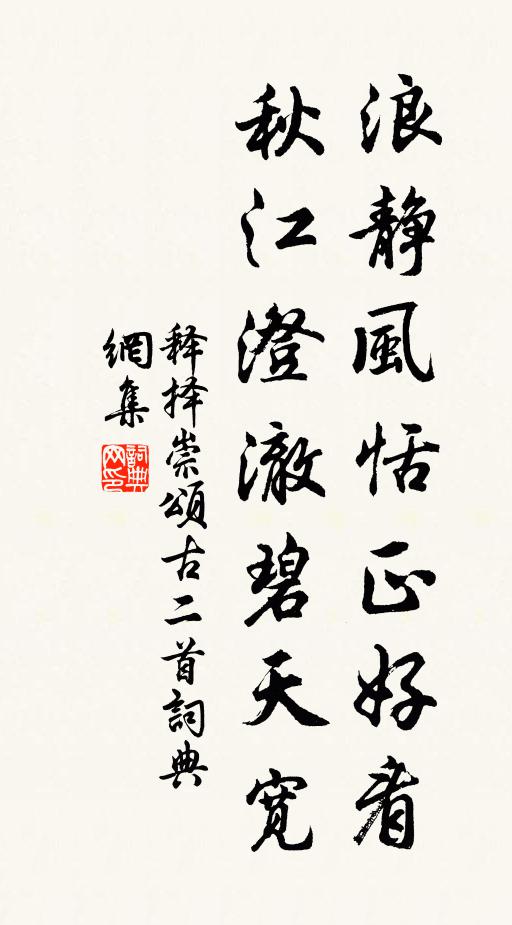 浪静風恬正好看
秋江澄澈碧天寬
释择崇頌古二首詞典
網集
詞典网印